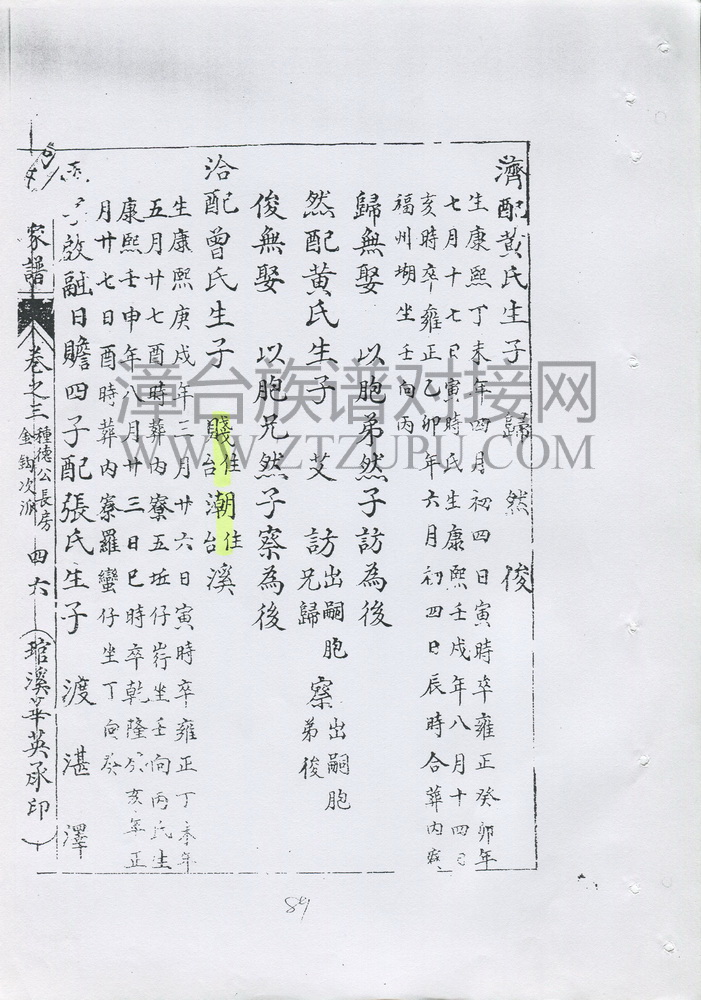 濟配黃氏生子 歸 然 俊
生康熙丁未年四月初四日寅時卒雍正癸卯年
七月十七日寅時氏生康熙壬戌年八月十四日
亥時卒雍正乙卯年六月初四日辰時合葬內寮
福州堋坐壬向丙
歸無娶 以胞弟然子訪為後
然配黃氏生子 艾 訪出嗣胞兄歸 察出嗣胞弟俊
俊無娶 以胞兄然子察為後
洽配曾氏生子 賤住台 潮住台 溪
生康熙庚戌年三月廿六日寅時卒雍正丁未年
五月廿七酉時葬內寮五坵仔崎坐壬向丙氏生
康熙壬申年八月廿三日巳時卒乾隆癸亥年正
月廿七日酉時葬內寮羅蠻仔坐丁向癸
子啟融日贍四子配張氏生子 渡 湛 澤
家譜 卷之三 種德公長房 金鈎次派 四六 (琯溪華英承印)
漳台族谱对接网
WWW.ZTZUPU.COM
89